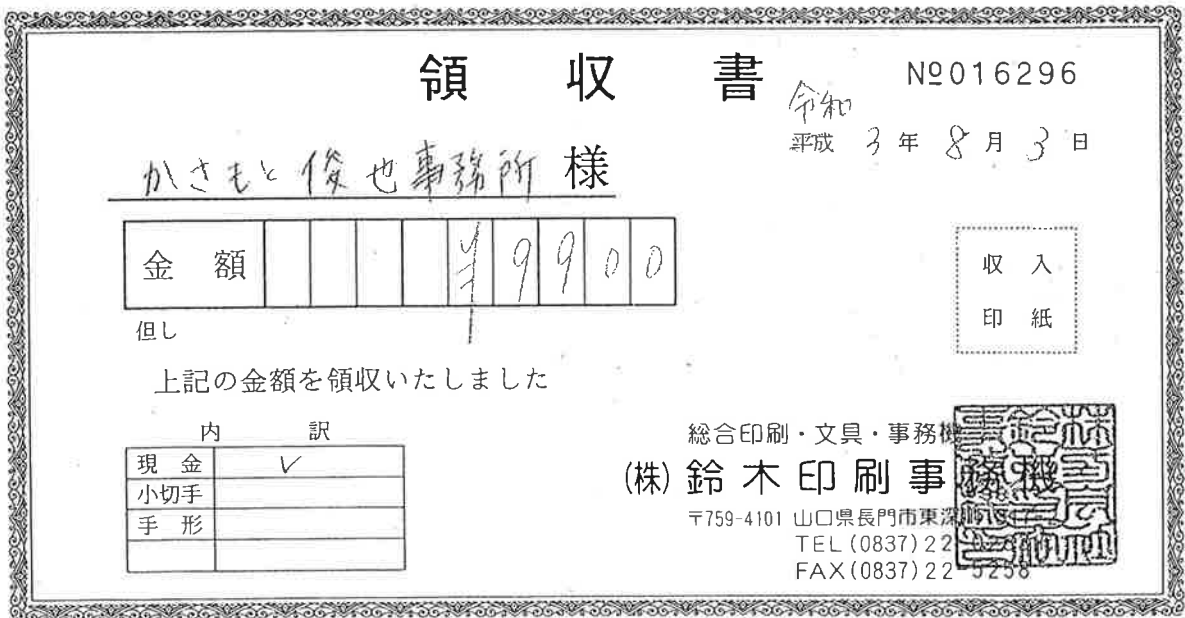 領収書
№016296
令和
平成 3年 8月 3日
かさもと俊也事務所 様
金額 ¥9900
収入
印紙
但し
上記の金額を領収いたしました
内訳
現金 ✓
小切手
手形
総合印刷・文具・事務機
(株)鈴木印刷事務機
〒759-4101 山口県長門市東深
TEL(0837)22
FAX(0837)22-5258